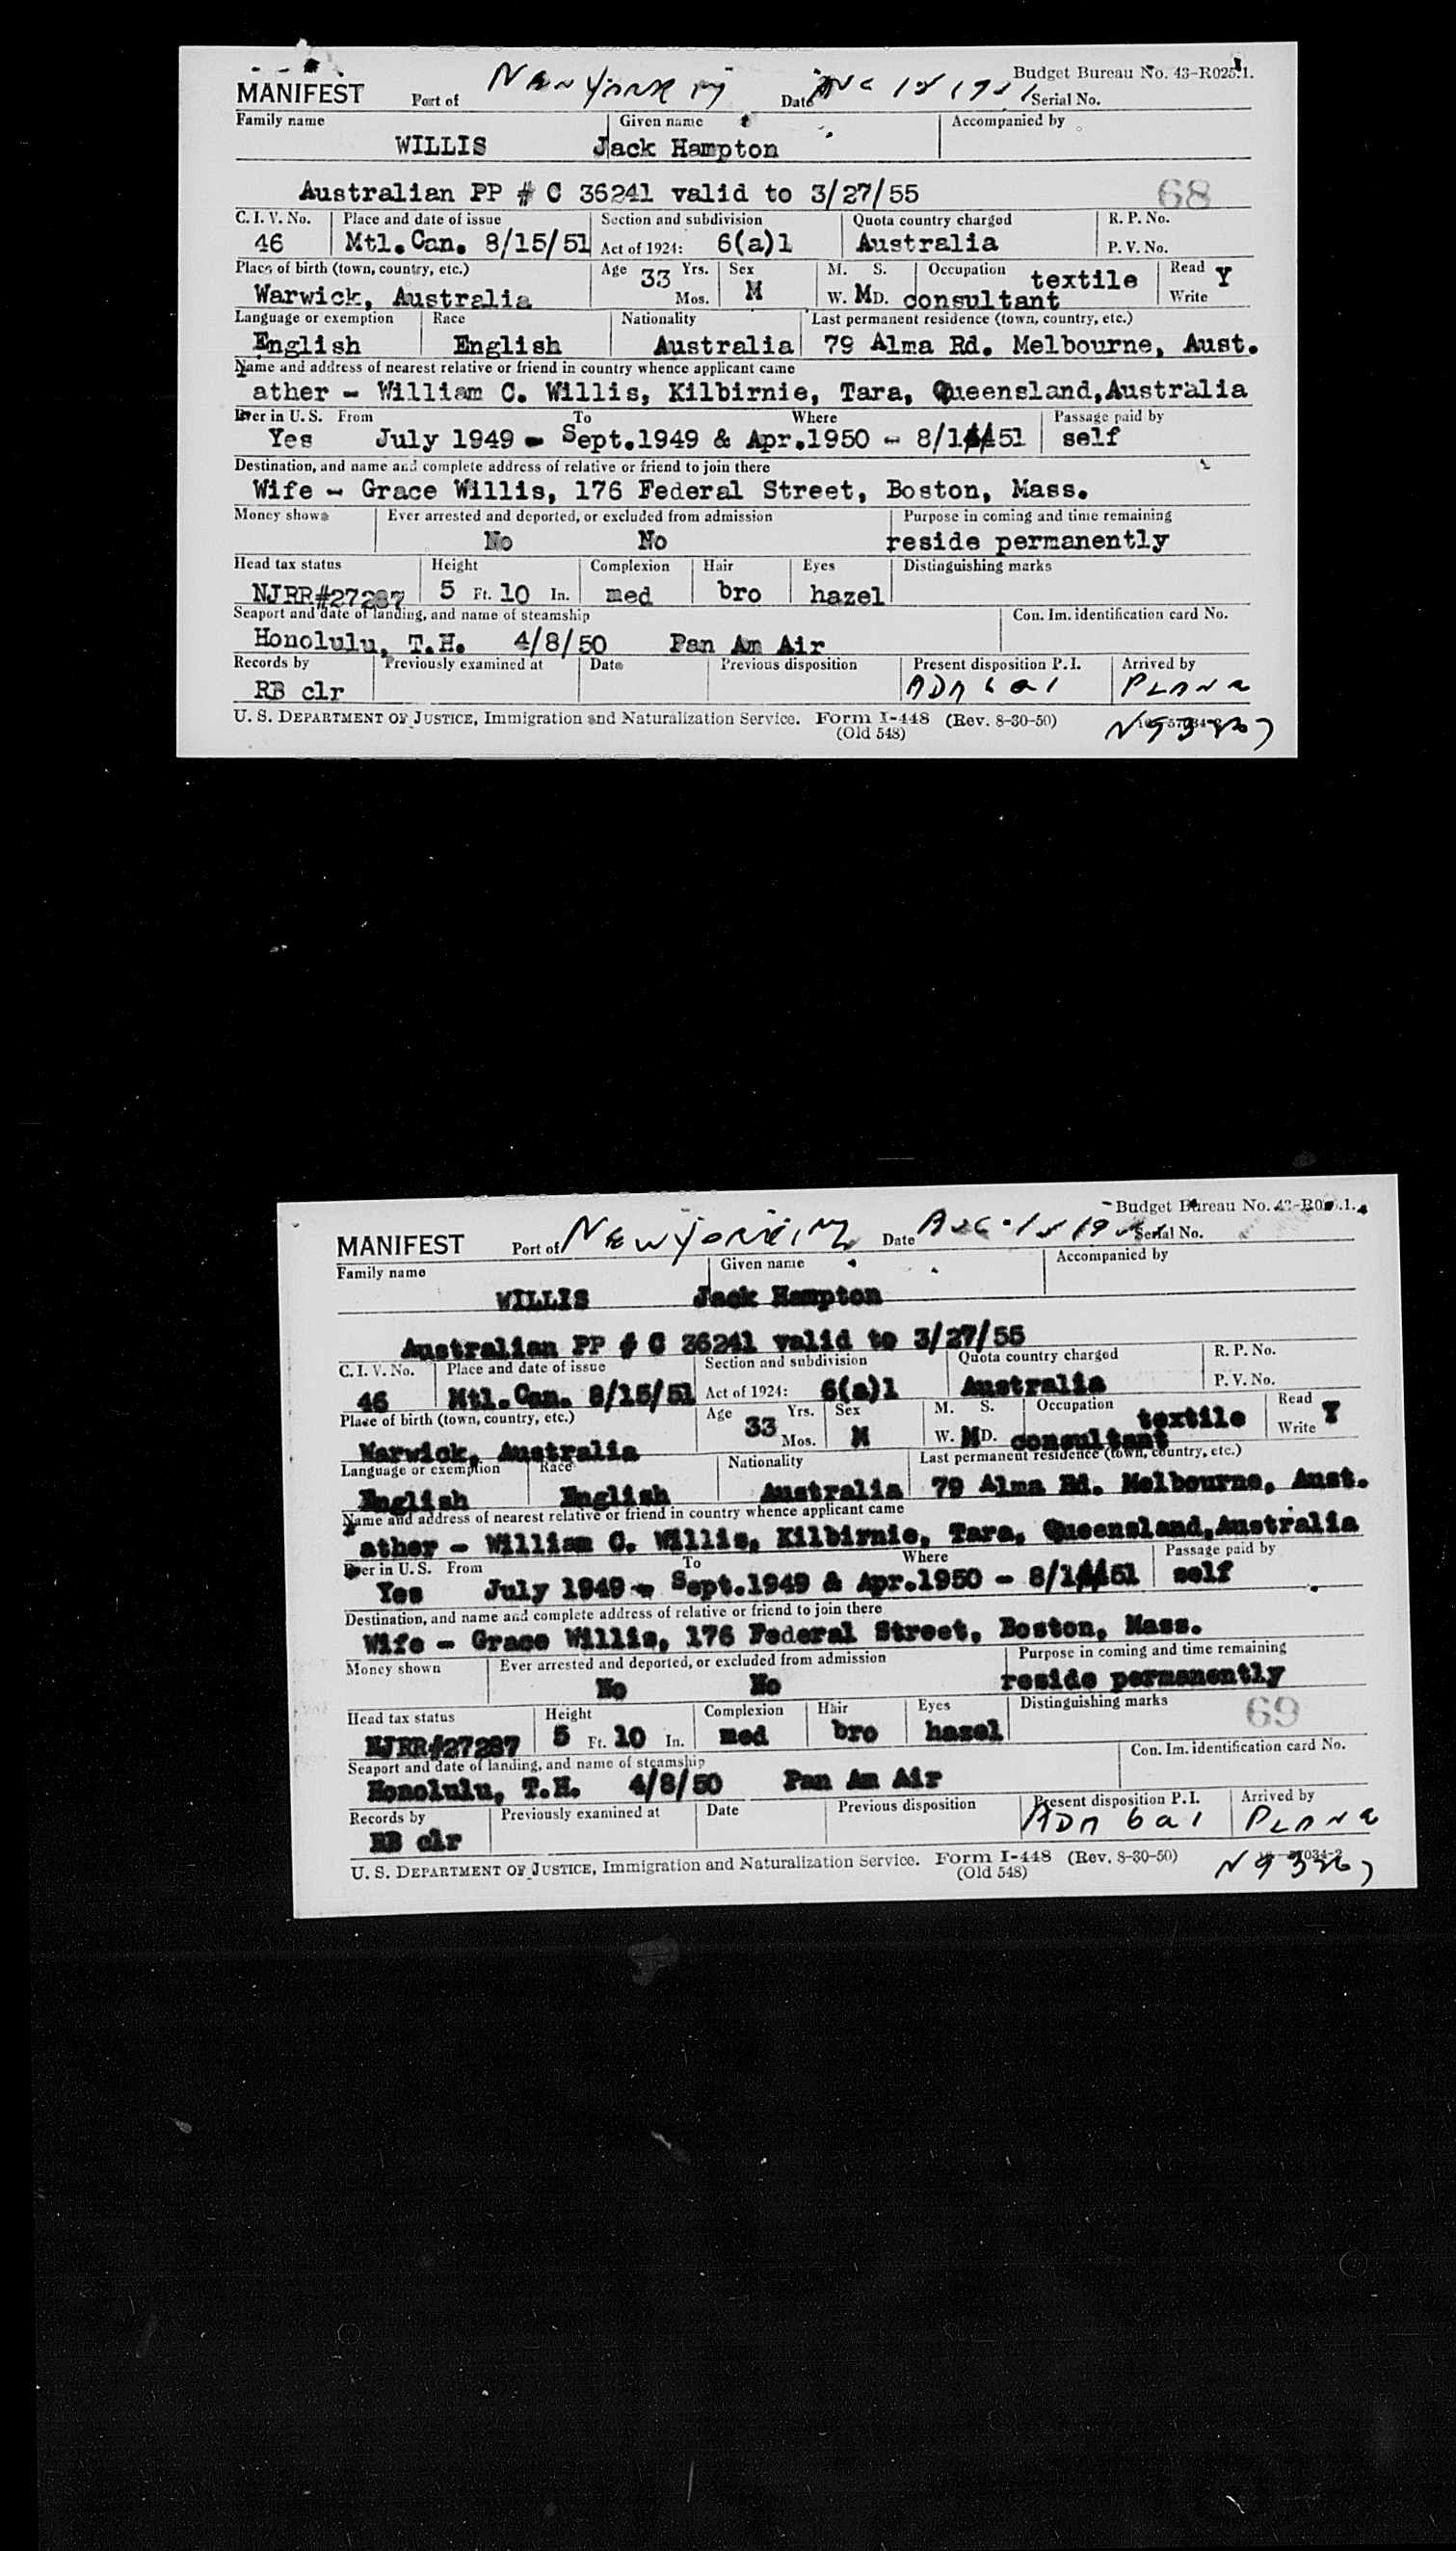 Budget Bureau No. 43-R025.1.
MANIFEST Port of New York NY Date Aug 15 1951 Serial No.
Family name Given name Accompanied by
WILLIS Jack Hampton
Australian PP # C 36241 valid to 3/27/55 68
C. I. V. No. Place and date of issue Section and subdivision Quota country charged R. P. No.
46 Mtl.Can. 8/15/51 Act of 1924: 6(a)1 Australia P. V. No.
Place of birth (town, country, etc.) Age 33 Yrs. Sex M. S. Occupation textile Read Y
Warwick, Australia Mos. M W. MD. consultant Write
Language or exemption Race Nationality Last permanent residence (town, country, etc.)
English English Australia 79 Alma Rd. Melbourne, Aust.
Name and address of nearest relative or friend in country whence applicant came
ather - William C. Willis, Kilbirnie, Tara, Queensland,Australia
Ever in U. S. From To Where Passage paid by
Yes July 1949 - Sept.1949 & Apr.1950 - 8/14/51 self
Destination, and name and complete address of relative or friend to join there
Wife - Grace Willis, 176 Federal Street, Boston, Mass.
Money shown Ever arrested and deported, or excluded from admission Purpose in coming and time remaining
No No reside permanently
Head tax status Height Complexion Hair Eyes Distinguishing marks
NJRR#27287 5 Ft. 10 In. med bro hazel
Seaport and date of landing, and name of steamship Con. Im. identification card No.
Honolulu, T.H. 4/8/50 Pan Am Air
Records by Previously examined at Date Previous disposition Present disposition P. I. Arrived by
RB clr ADM 6a1 PLANE
U. S. DEPARTMENT OF JUSTICE, Immigration and Naturalization Service. Form I-448 (Rev. 8-30-50)
(Old 548)
Budget Bureau No.
MANIFEST Port of New York, NY Date Aug 15 1951 Serial No.
Family name Given name Accompanied by
WILLIS Jack Hampton
Australian PP # C 36241 valid to 3/27/55
C. I. V. No. Place and date of issue Section and subdivision Quota country charged R. P. No.
46 Mtl.Can. 8/15/51 Act of 1924: 6(a)1 Australia P. V. No.
Place of birth (town, country, etc.) Age 33 Yrs. Sex M. S. Occupation textile Read Y
Warwick, Australia Mos. M W. MD. consultant Write
Language or exemption Race Nationality Last permanent residence (town, country, etc.)
English English Australia 79 Alma Rd. Melbourne, Aust.
Name and address of nearest relative or friend in country whence applicant came
ather - William C. Willis, Kilbirnie, Tara, Queensland,Australia
Ever in U. S. From To Where Passage paid by
Yes July 1949 - Sept.1949 & Apr.1950 - 8/14/51 self
Destination, and name and complete address of relative or friend to join there
Wife - Grace Willis, 176 Federal Street, Boston, Mass.
Money shown Ever arrested and deported, or excluded from admission Purpose in coming and time remaining
No No reside permanently
Head tax status Height Complexion Hair Eyes Distinguishing marks 69
NJRR#27287 5 Ft. 10 In. med bro hazel
Seaport and date of landing, and name of steamship Con. Im. identification card No.
Honolulu, T.H. 4/8/50 Pan Am Air
Records by Previously examined at Date Previous disposition Present disposition P. I. Arrived by
RB clr ADM 6a1 PLANE
U. S. DEPARTMENT OF JUSTICE, Immigration and Naturalization Service. Form I-448 (Rev. 8-30-50)
(Old 548)